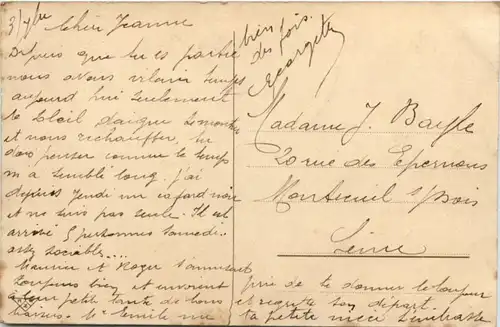 3/7bre Chère Jeanne
Depuis que tu es partie
nous avons vilain temps
aujourd hui seulement
le soleil daigne se montrer
et nous rechauffer, tu
dois penser comme le temps
m a semblé long. j'ai
depuis Jeudi un cafard noir
et ne suis pas seule. Il est
arrivé 5 personnes Samedi..
assez sociables....
Maurice et Roger s'amusent
toujours bien et envoient
à leur petite tante de bons
baisers. Me Emile me
prie de te donner le bonjour
et regrette son départ.
ta petite nièce t'embrasse
bien
des fois.
Madame J. Bayle
20 rue des Epernons
Montreuil s/Bois
Seine